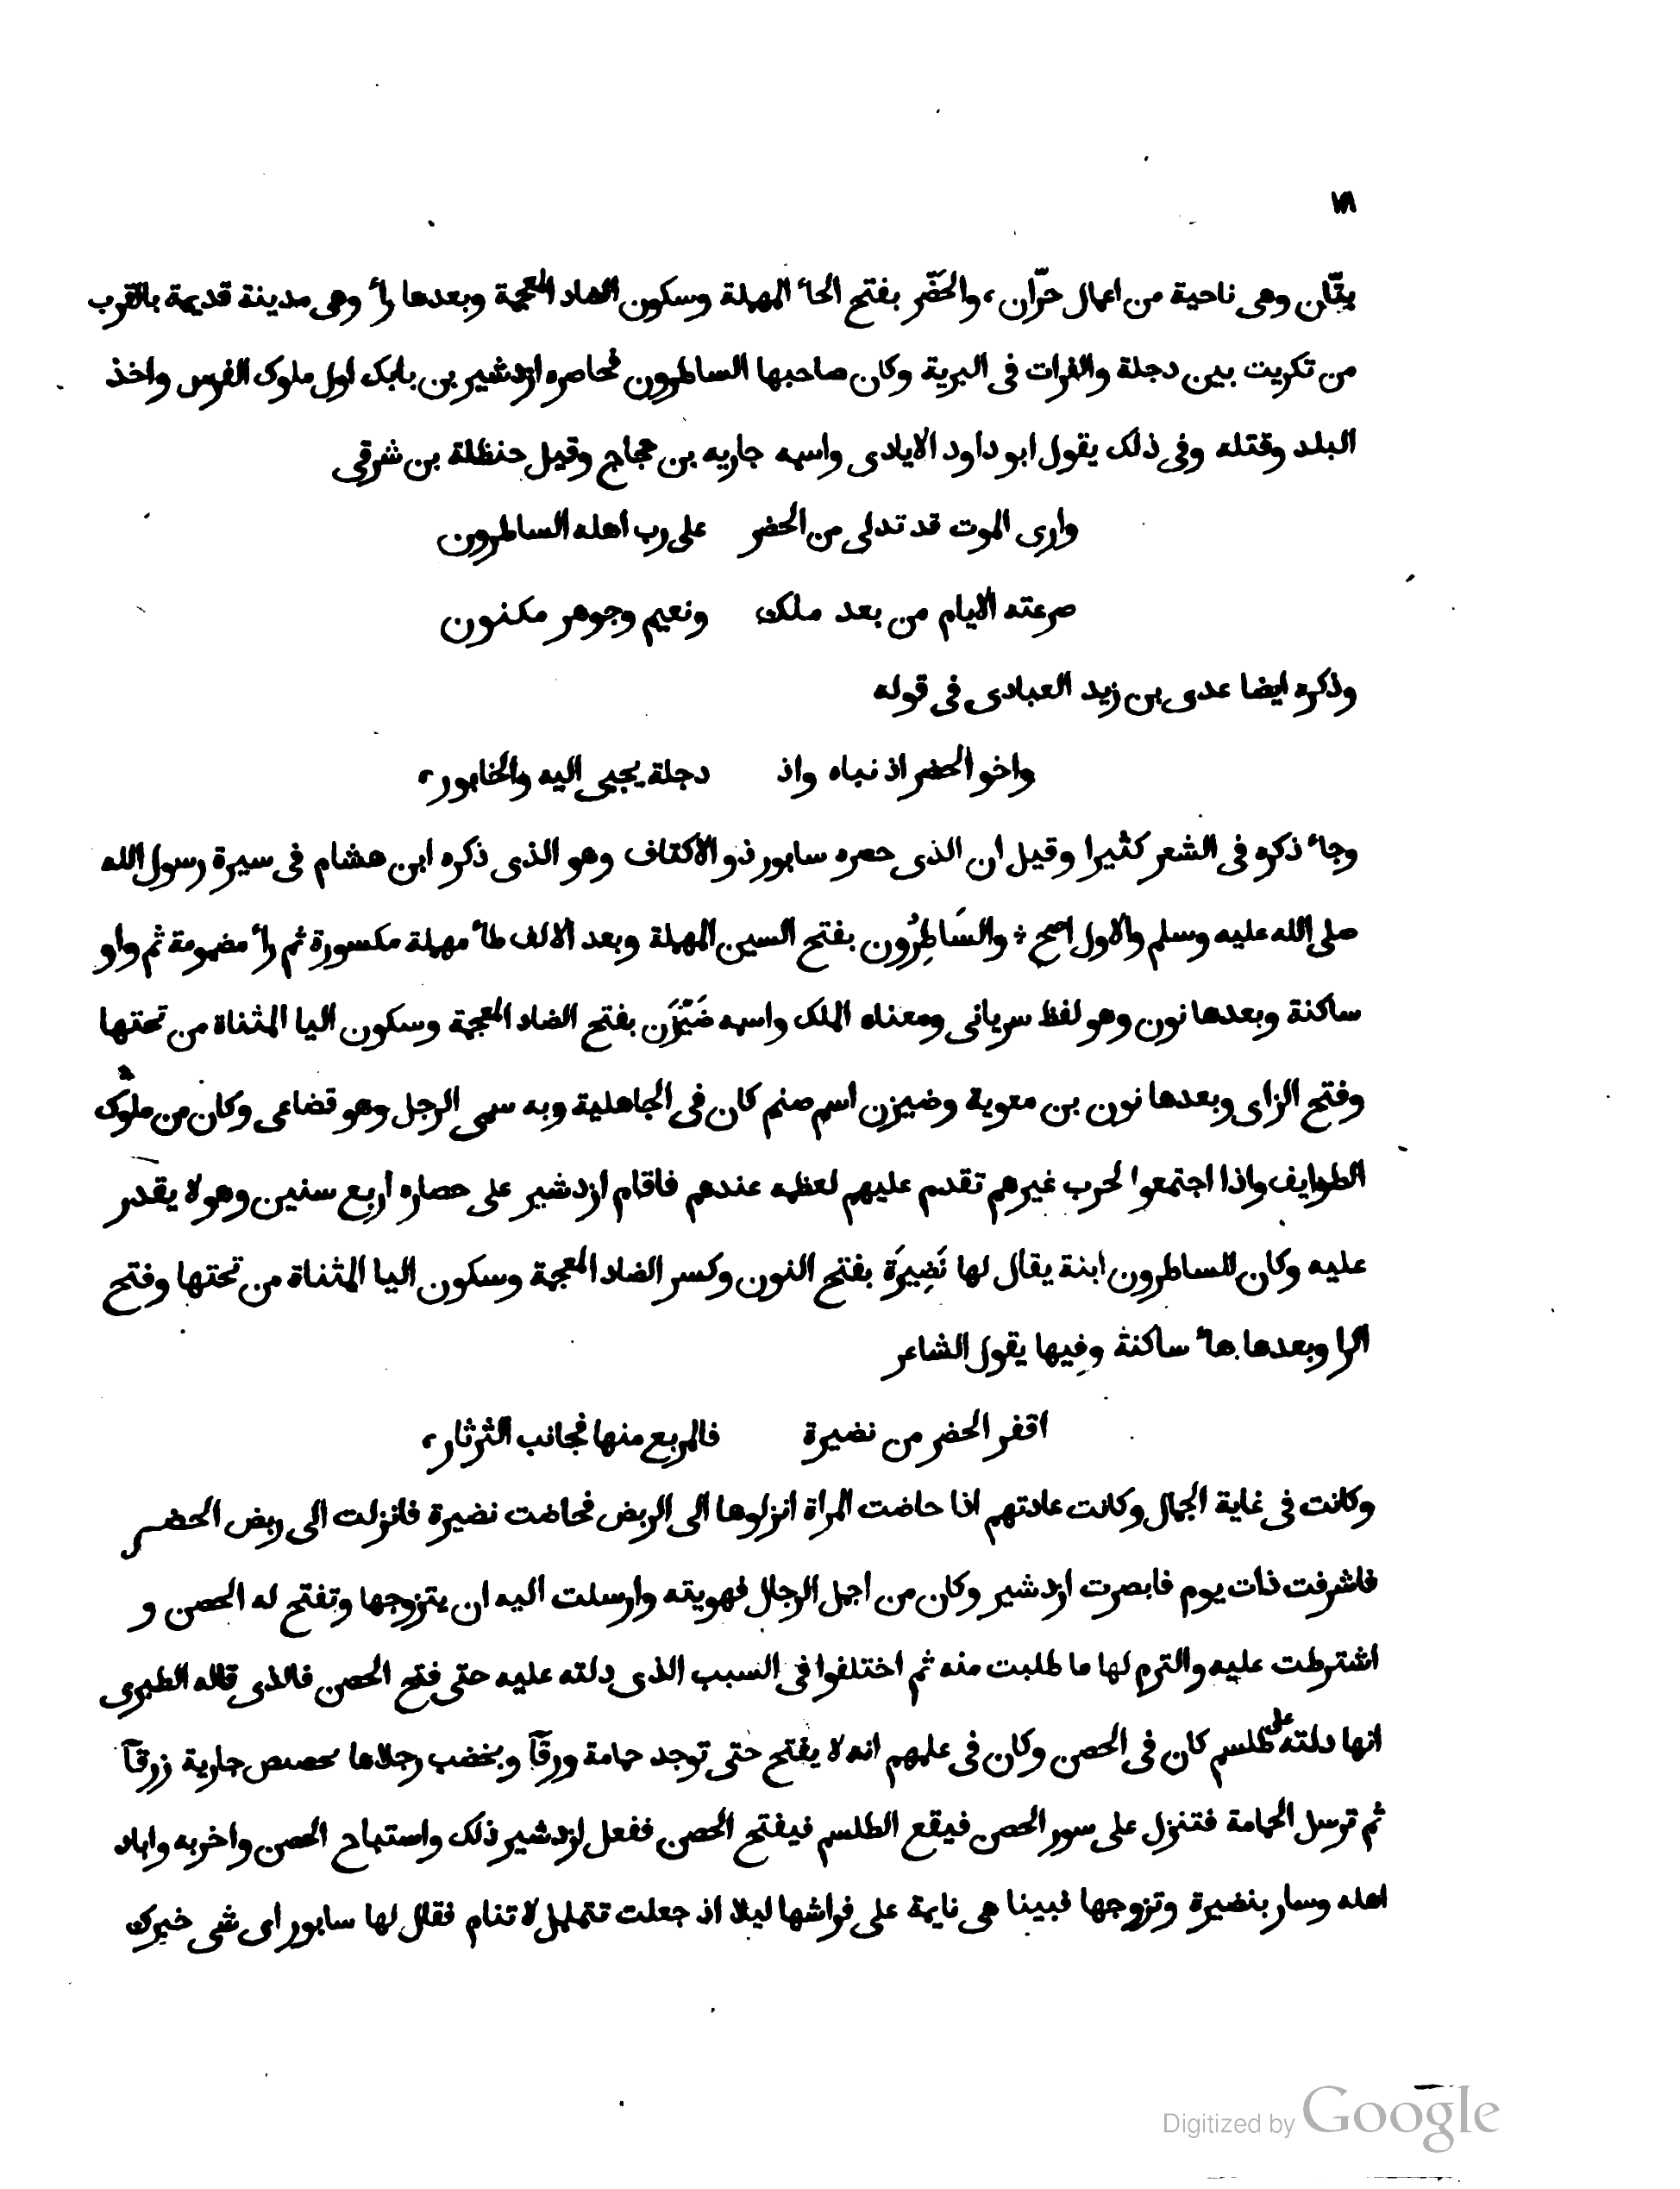 ٧١
بتّان وهى ناحية من اعمال حرّان، والحَضْر بفتح الحاٴ المهملة وسكون الضاد المعجمة وبعدها راٴ وهى مدينة قديمة بالقرب
من تكريت بين دجلة والفرات فى البرية وكان صاحبها الساطرون فحاصره ازدشير بن بابك اول ملوك الفرس واخذ
البلد وقتله وفى ذلك يقول ابو داود الايادى واسمه جاريه بن حجاج وقيل حنظلة بن شرقى
وارى الموت قد تدلى من الحضر على رب اهله الساطرون
صرعته الايام من بعد ملك ونعيم وجوهر مكنون
وذكره ايضا عدى بن زيد العبادى فى قوله
واخو الحضر اذ نباه واذ دجلة يجبى اليه والخابور،
وجاٴ ذكره فى الشعر كثيرا وقيل ان الذى حصره سابور ذو الاكتاف وهو الذى ذكره ابن هشام فى سيرة رسول الله
صلى الله عليه وسلم والاول اصح؛ والسَاطِرُون بفتح السين المهملة وبعد الالف طاٴ مهملة مكسورة ثم راٴ مضمومة ثم واو
ساكنة وبعدها نون وهو لفظ سريانى ومعناه الملك واسمه ضَيْزَن بفتح الضاد المعجمة وسكون اليا المثناة من تحتها
وفتح الزاى وبعدها نون بن معوية وضيزن اسم صنم كان فى الجاهلية وبه سمى الرجل وهو قضاعى وكان من ملوك
الطوايف واذا اجتمعوا لحرب غيرهم تقدم عليهم لعظمه عندهم فاقام ازدشير على حصاره اربع سنين وهو لا يقدر
عليه وكان للساطرون ابنة يقال لها نَضِيرَة بفتح النون وكسر الضاد المعجمة وسكون اليا المثناة من تحتها وفتح
الرا وبعدها هاٴ ساكنة وفيها يقول الشاعر
اقفر الحضر من نضيرة فالمربع منها فجانب الثرثار،
وكانت فى غاية الجمال وكانت عادتهم اذا حاضت المراة انزلوها الى الربض فحاضت نضيرة فانزلت الى ربض الحضر
فاشرفت ذات يوم فابصرت ازدشير وكان من اجمل الرجال فهويته وارسلت اليه ان يتزوجها وتفتح له الحصن و
اشترطت عليه والتزم لها ما طلبت منه ثم اختلفوا فى السبب الذى دلته عليه حتى فتح الحصن فالذى قاله الطبرى
انها دلته على طلسم كان فى الحصن وكان فى علمهم انه لا يفتح حتى توجد حمامة ورقآ ويخضب رجلاها بحيض جارية زرقآ
ثم ترسل الحمامة فتنزل على سور الحصن فيقع الطلسم فيفتح الحصن ففعل ازدشير ذلك واستباح الحصن واخربه واباد
اهله وسار بنضيرة وتزوجها فبينا هى نايمة على فراشها ليلا اذ جعلت تتململ لا تنام فقال لها سابور اى شى خيرك
Digitized by Google